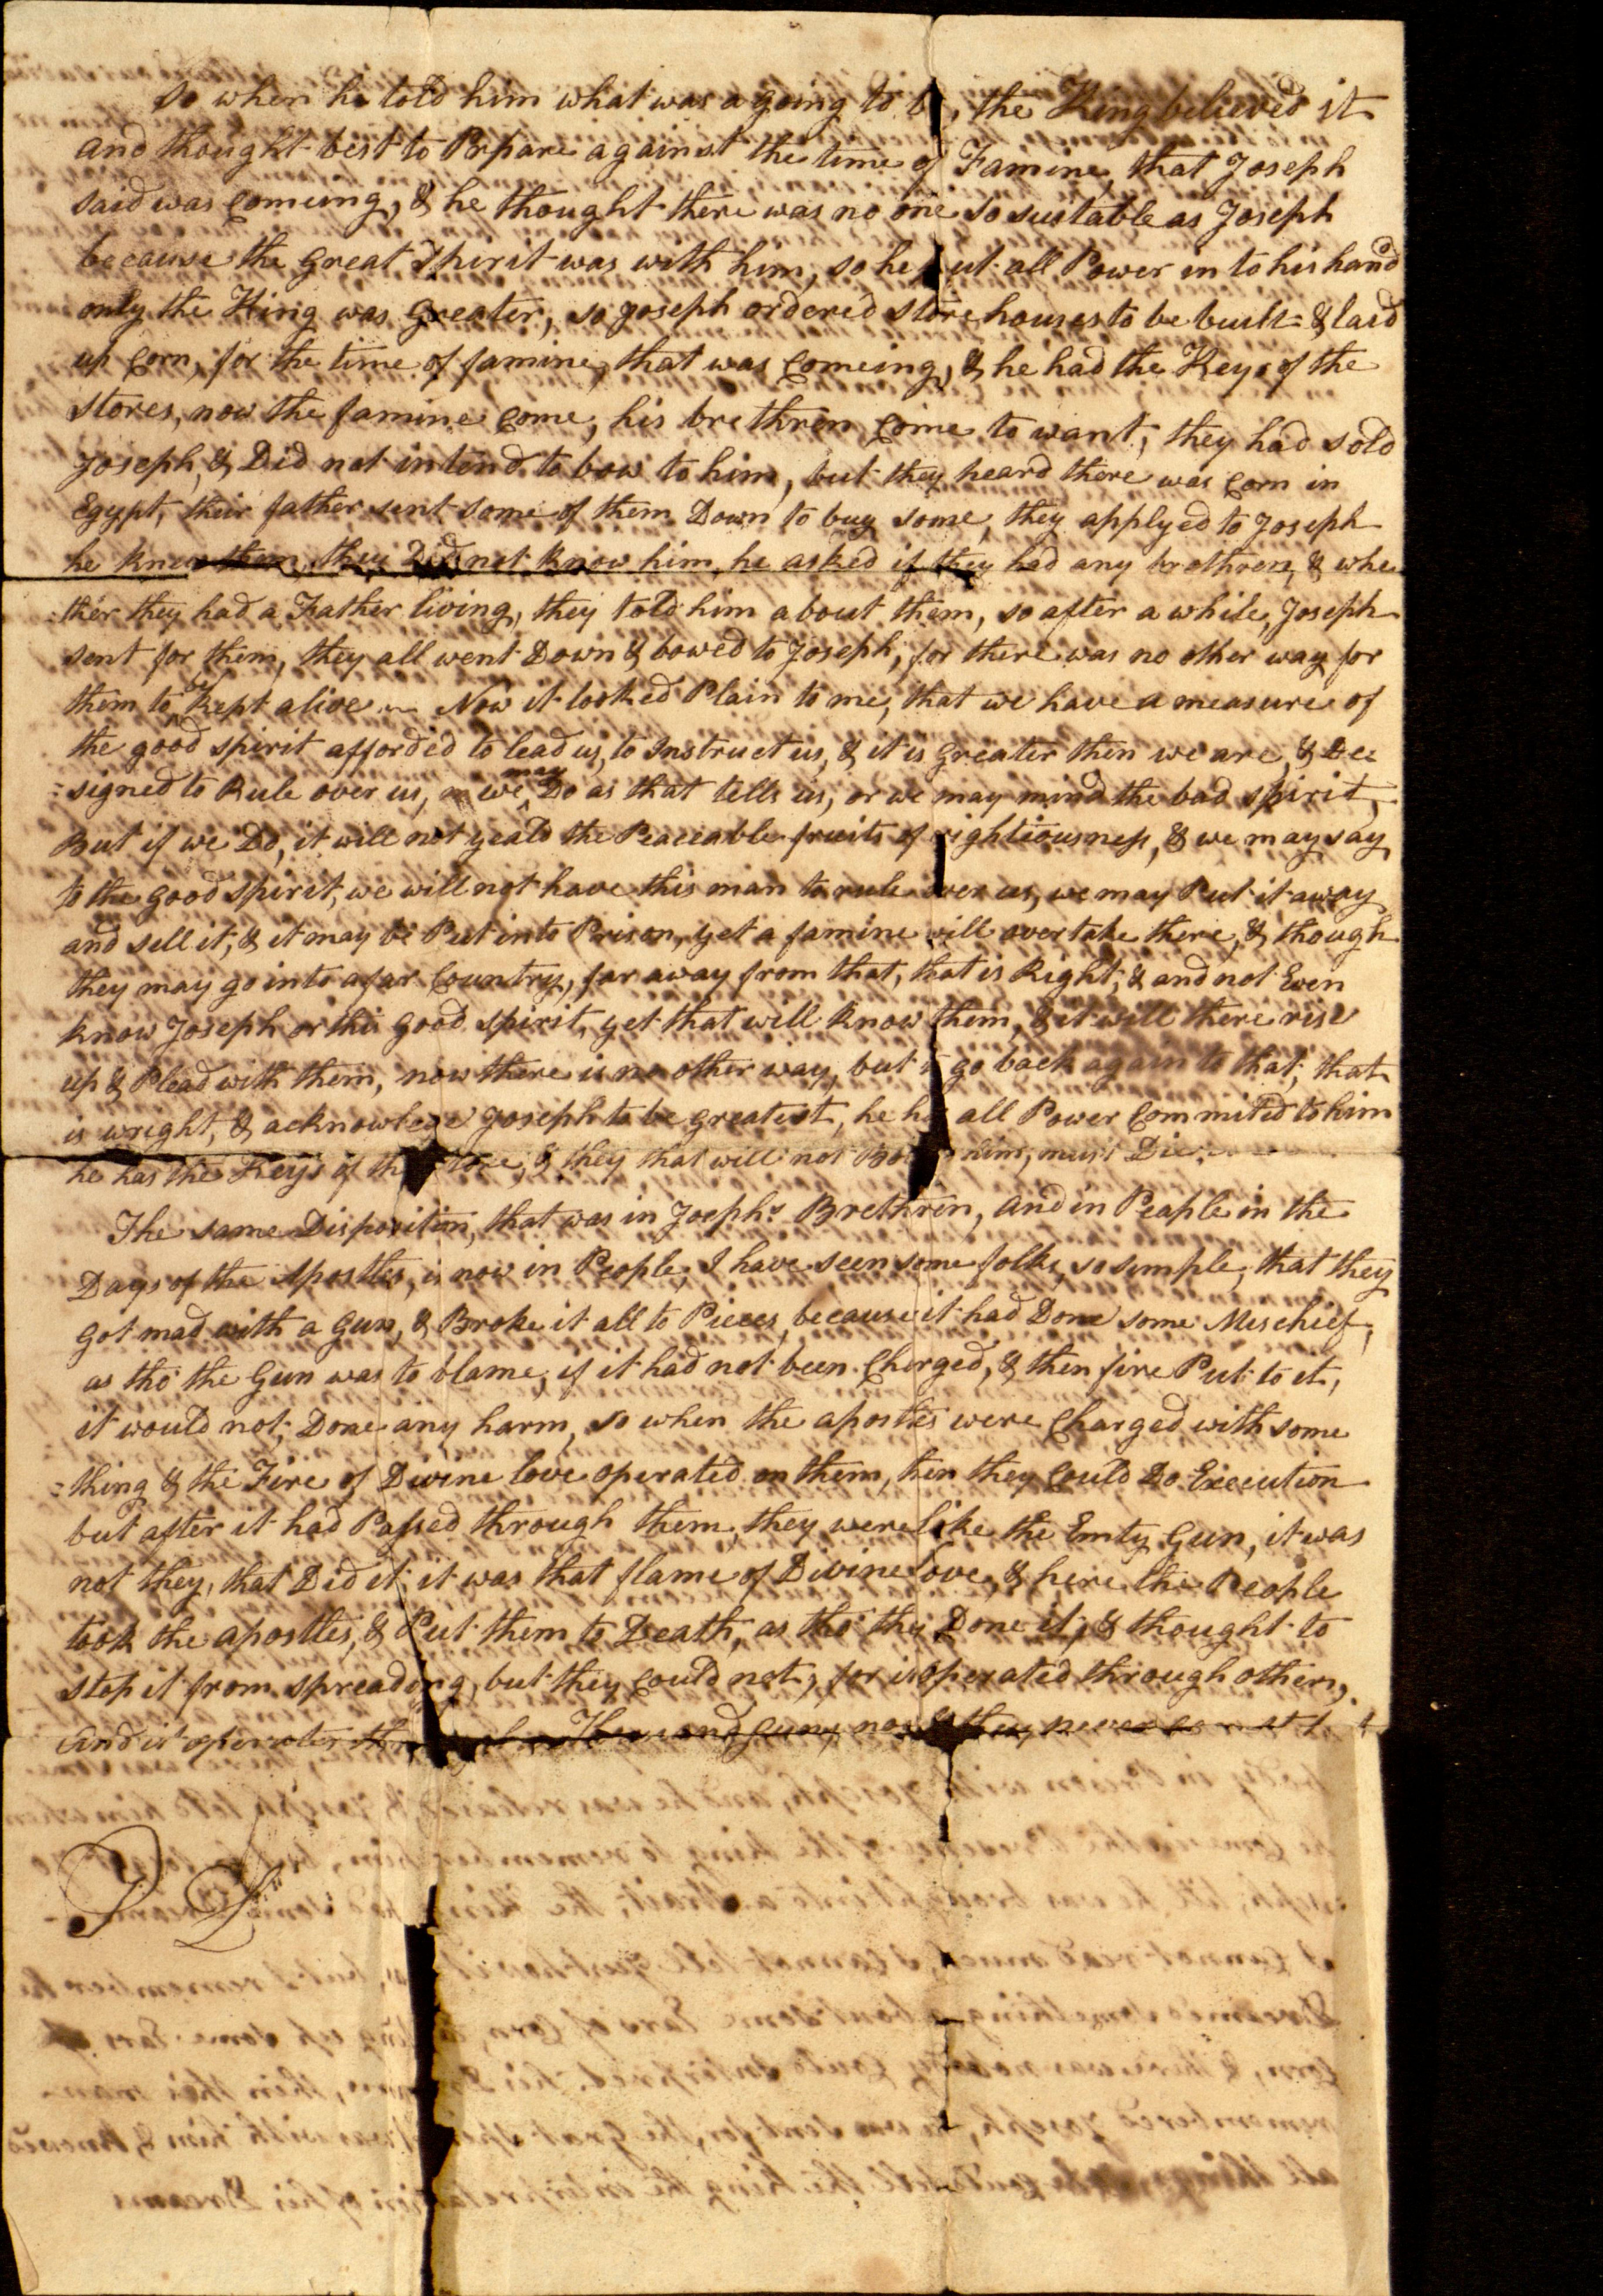 So when he told him what was a going to b, the King believed it
and thought best to Prpare against the time of Famine, that Joseph
said was Comeing, & he thought there was no one so suetable as Joseph
because the great Spirit was with him, so he put all Power in to his hand
only the King was greater, so Joseph ordered store houses to be built & laid
up Corn, for the time of famine, that was Comeing, & he had the Keys of the
Stores, now the famine Come, his brethren Come to want, they had sold
Joseph, & Did not intend to bow to him, but they heard there was Corn in
Egypt, their father sent some of them Down to buy some, they applyed to Joseph
he knew them, they Did not know him, he asked if they had any brethren, & whe
=ther they had a Father living, they told him about them, so after a while, Joseph
sent for them, they all went Down & bowed to Joseph, for there was no other way for
them to be Kept alive Now it looked Plain to me, that we have a measure of
the good spirit afforded to lead us, to Instruct us, & it is greater then we are, & De
=signed to Rule over us, we may Do as that tells us, or we may mind the bad spirit,
But if we Do, it will not yeald the Peaceable fruits of rightiousness, & we may say
to the good Spirit, we will not have this man to rule over us, we may Put it away
and sell it, & it may be Put into Prison, yet a famine will overtake there, & though
they may go into a far Country, far away from that, that is Right, & and not Even
know Joseph or the good spirit, yet that will know them, & it will there rise
up & Plead with them, now there is no other way, but go back again to that, that
is wright, & acknowlege Joseph to be greatest, he has all Power Commited to him
he has the Keys of the store, & they that will not Bow him, must Die.
The same Disposition, that was in Josephs Brethren, and in Peaple in the
Days of the Apostles, is now in People, I have seen some folks, so simple, that they
got mad with a Gun, & Broke it all to Pieces, because it had Done some Mischief,
as tho the Gun was to blame, if it had not been Charged, & then fire Put to it,
it would not, Done any harm, so when the apostles were Charged with some
=thing & the Fire of Divine love operated on them, then they Could Do Execution
but after it had Passed through them, they were like the Emty Gun, it was
not they, that Did it, it was that flame of Divine Love, & here the People
took the apostles, & Put them to Death, as tho they Done it, & thought to
stop it from spreading, but they Could not, for it operated through others,
and it operates through Thousand Guns now & they never can
P